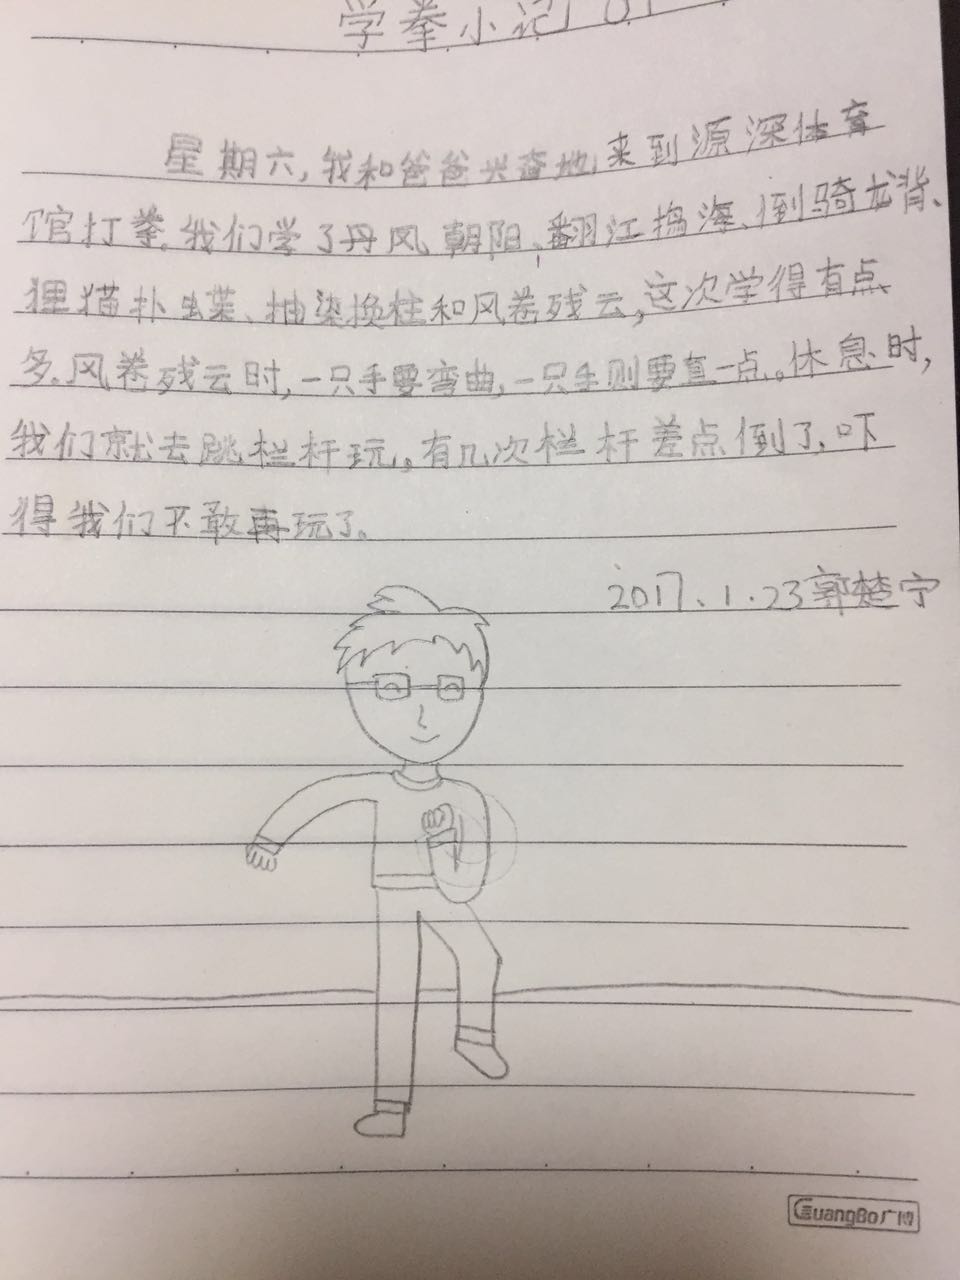 学拳小记
星期六,我和爸爸兴奋地来到源深体育
馆打拳。我们学了丹凤朝阳、翻江捣海、倒骑龙背、
狸猫扑蝶、抽梁换柱和风卷残云,这次学得有点
多。风卷残云时,一只手要弯曲,一只手则要直一点。休息时,
我们就去跳栏杆玩。有几次栏杆差点倒了,吓
得我们不敢再玩了。
2017、1.23郭楚宁
GuangBo广博